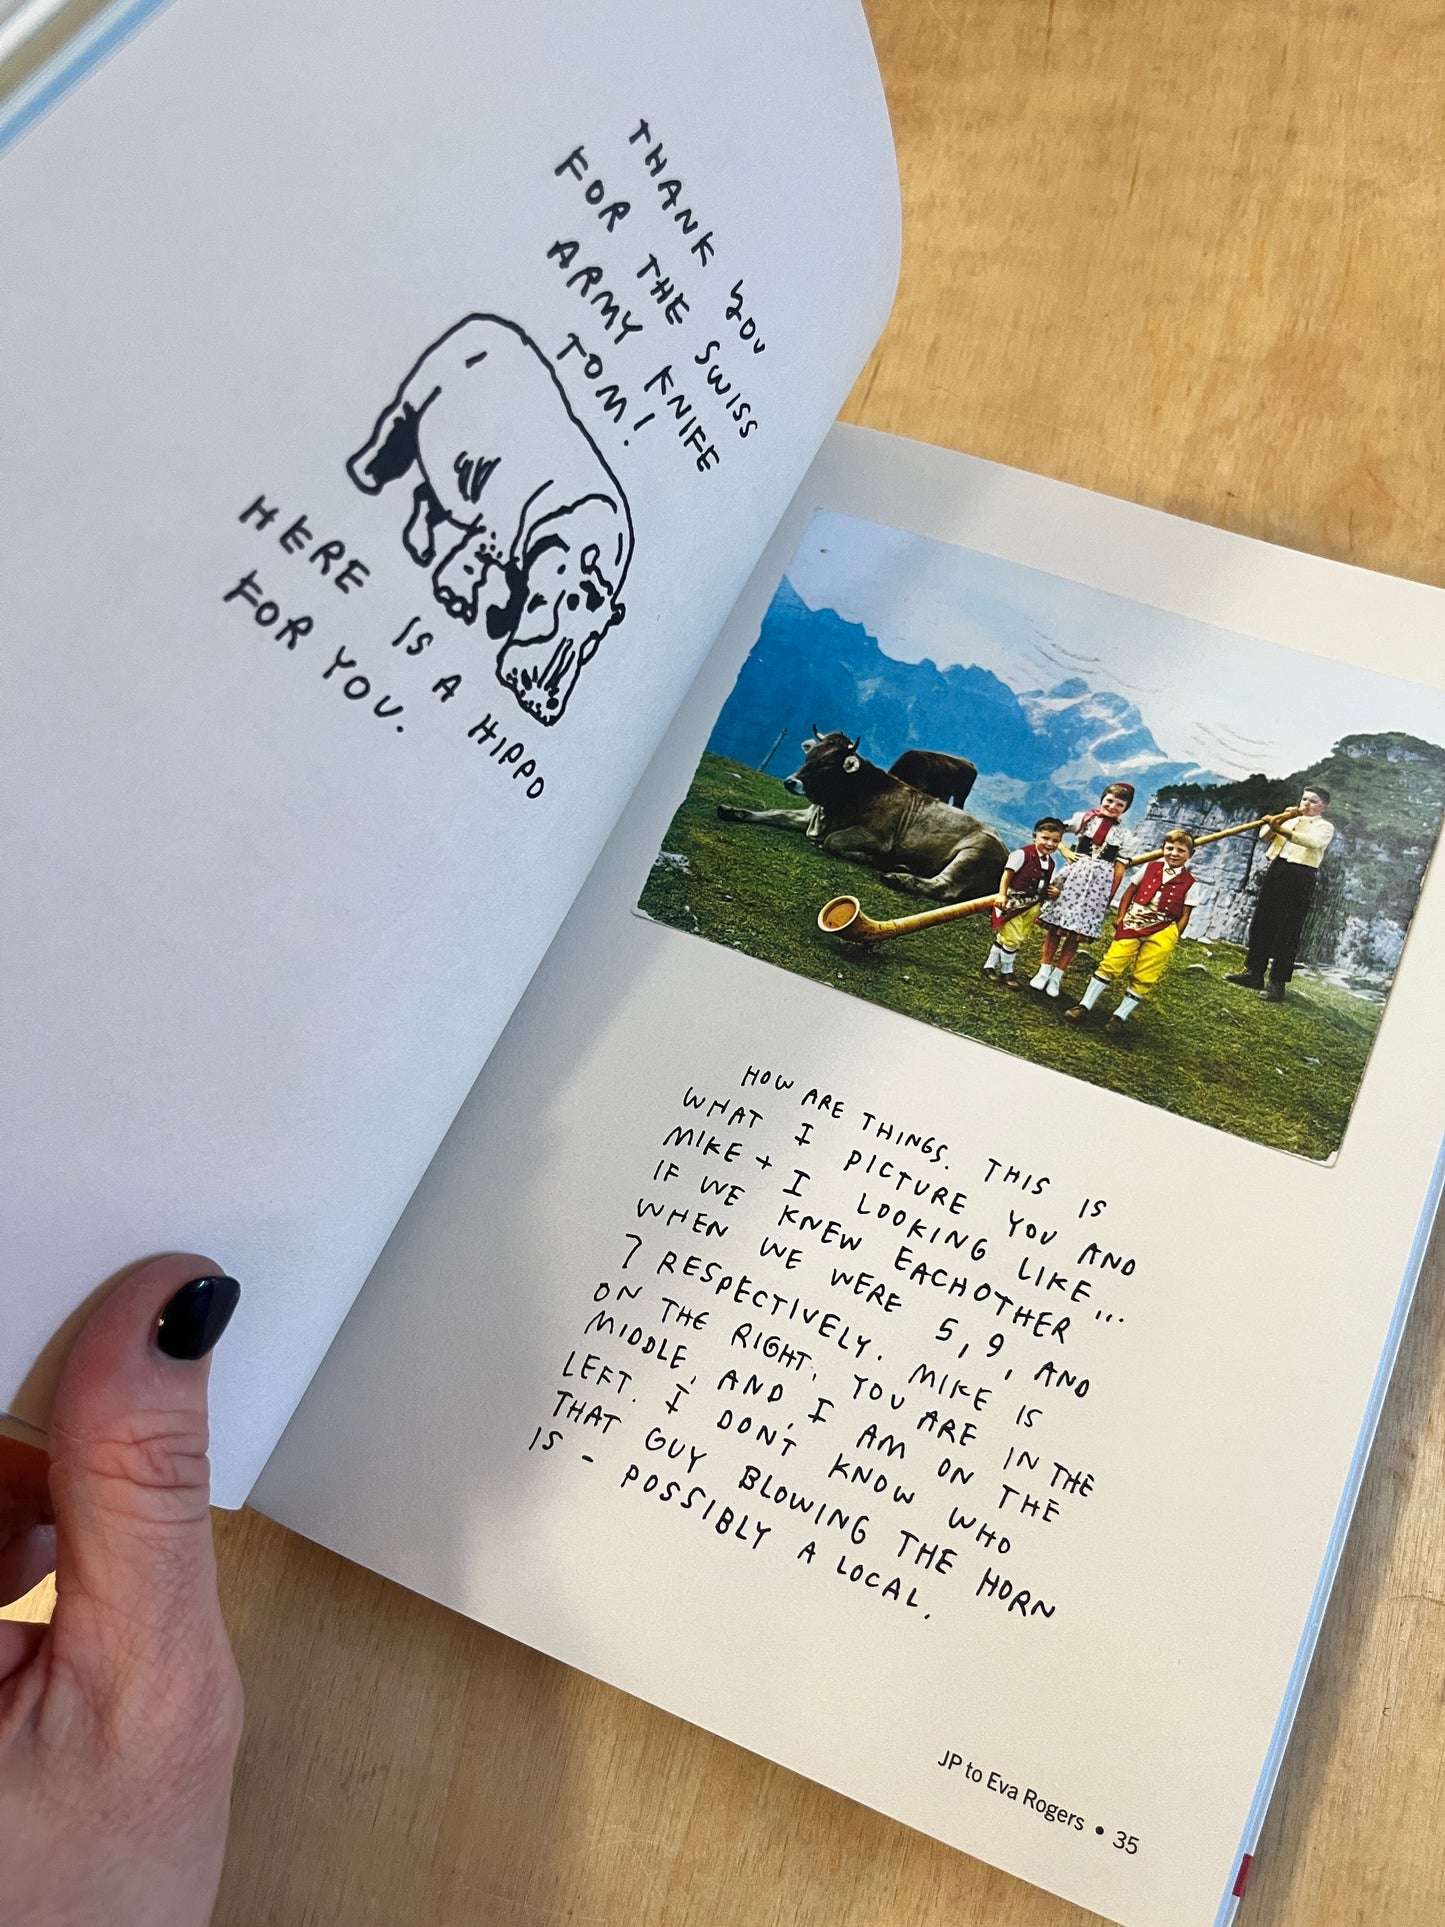 THANK YOU
FOR THE SWISS
ARMY KNIFE
TOM!
HERE IS A HIPPO
FOR YOU.
HOW ARE THINGS. THIS IS
WHAT I PICTURE YOU AND
MIKE + I LOOKING LIKE...
IF WE KNEW EACHOTHER
WHEN WE WERE 5, 9, AND
7 RESPECTIVELY. MIKE IS
ON THE RIGHT, YOU ARE IN THE
MIDDLE, AND, I AM ON THE
LEFT. I DON'T KNOW WHO
THAT GUY BLOWING THE HORN
IS - POSSIBLY A LOCAL.
JP to Eva Rogers • 35